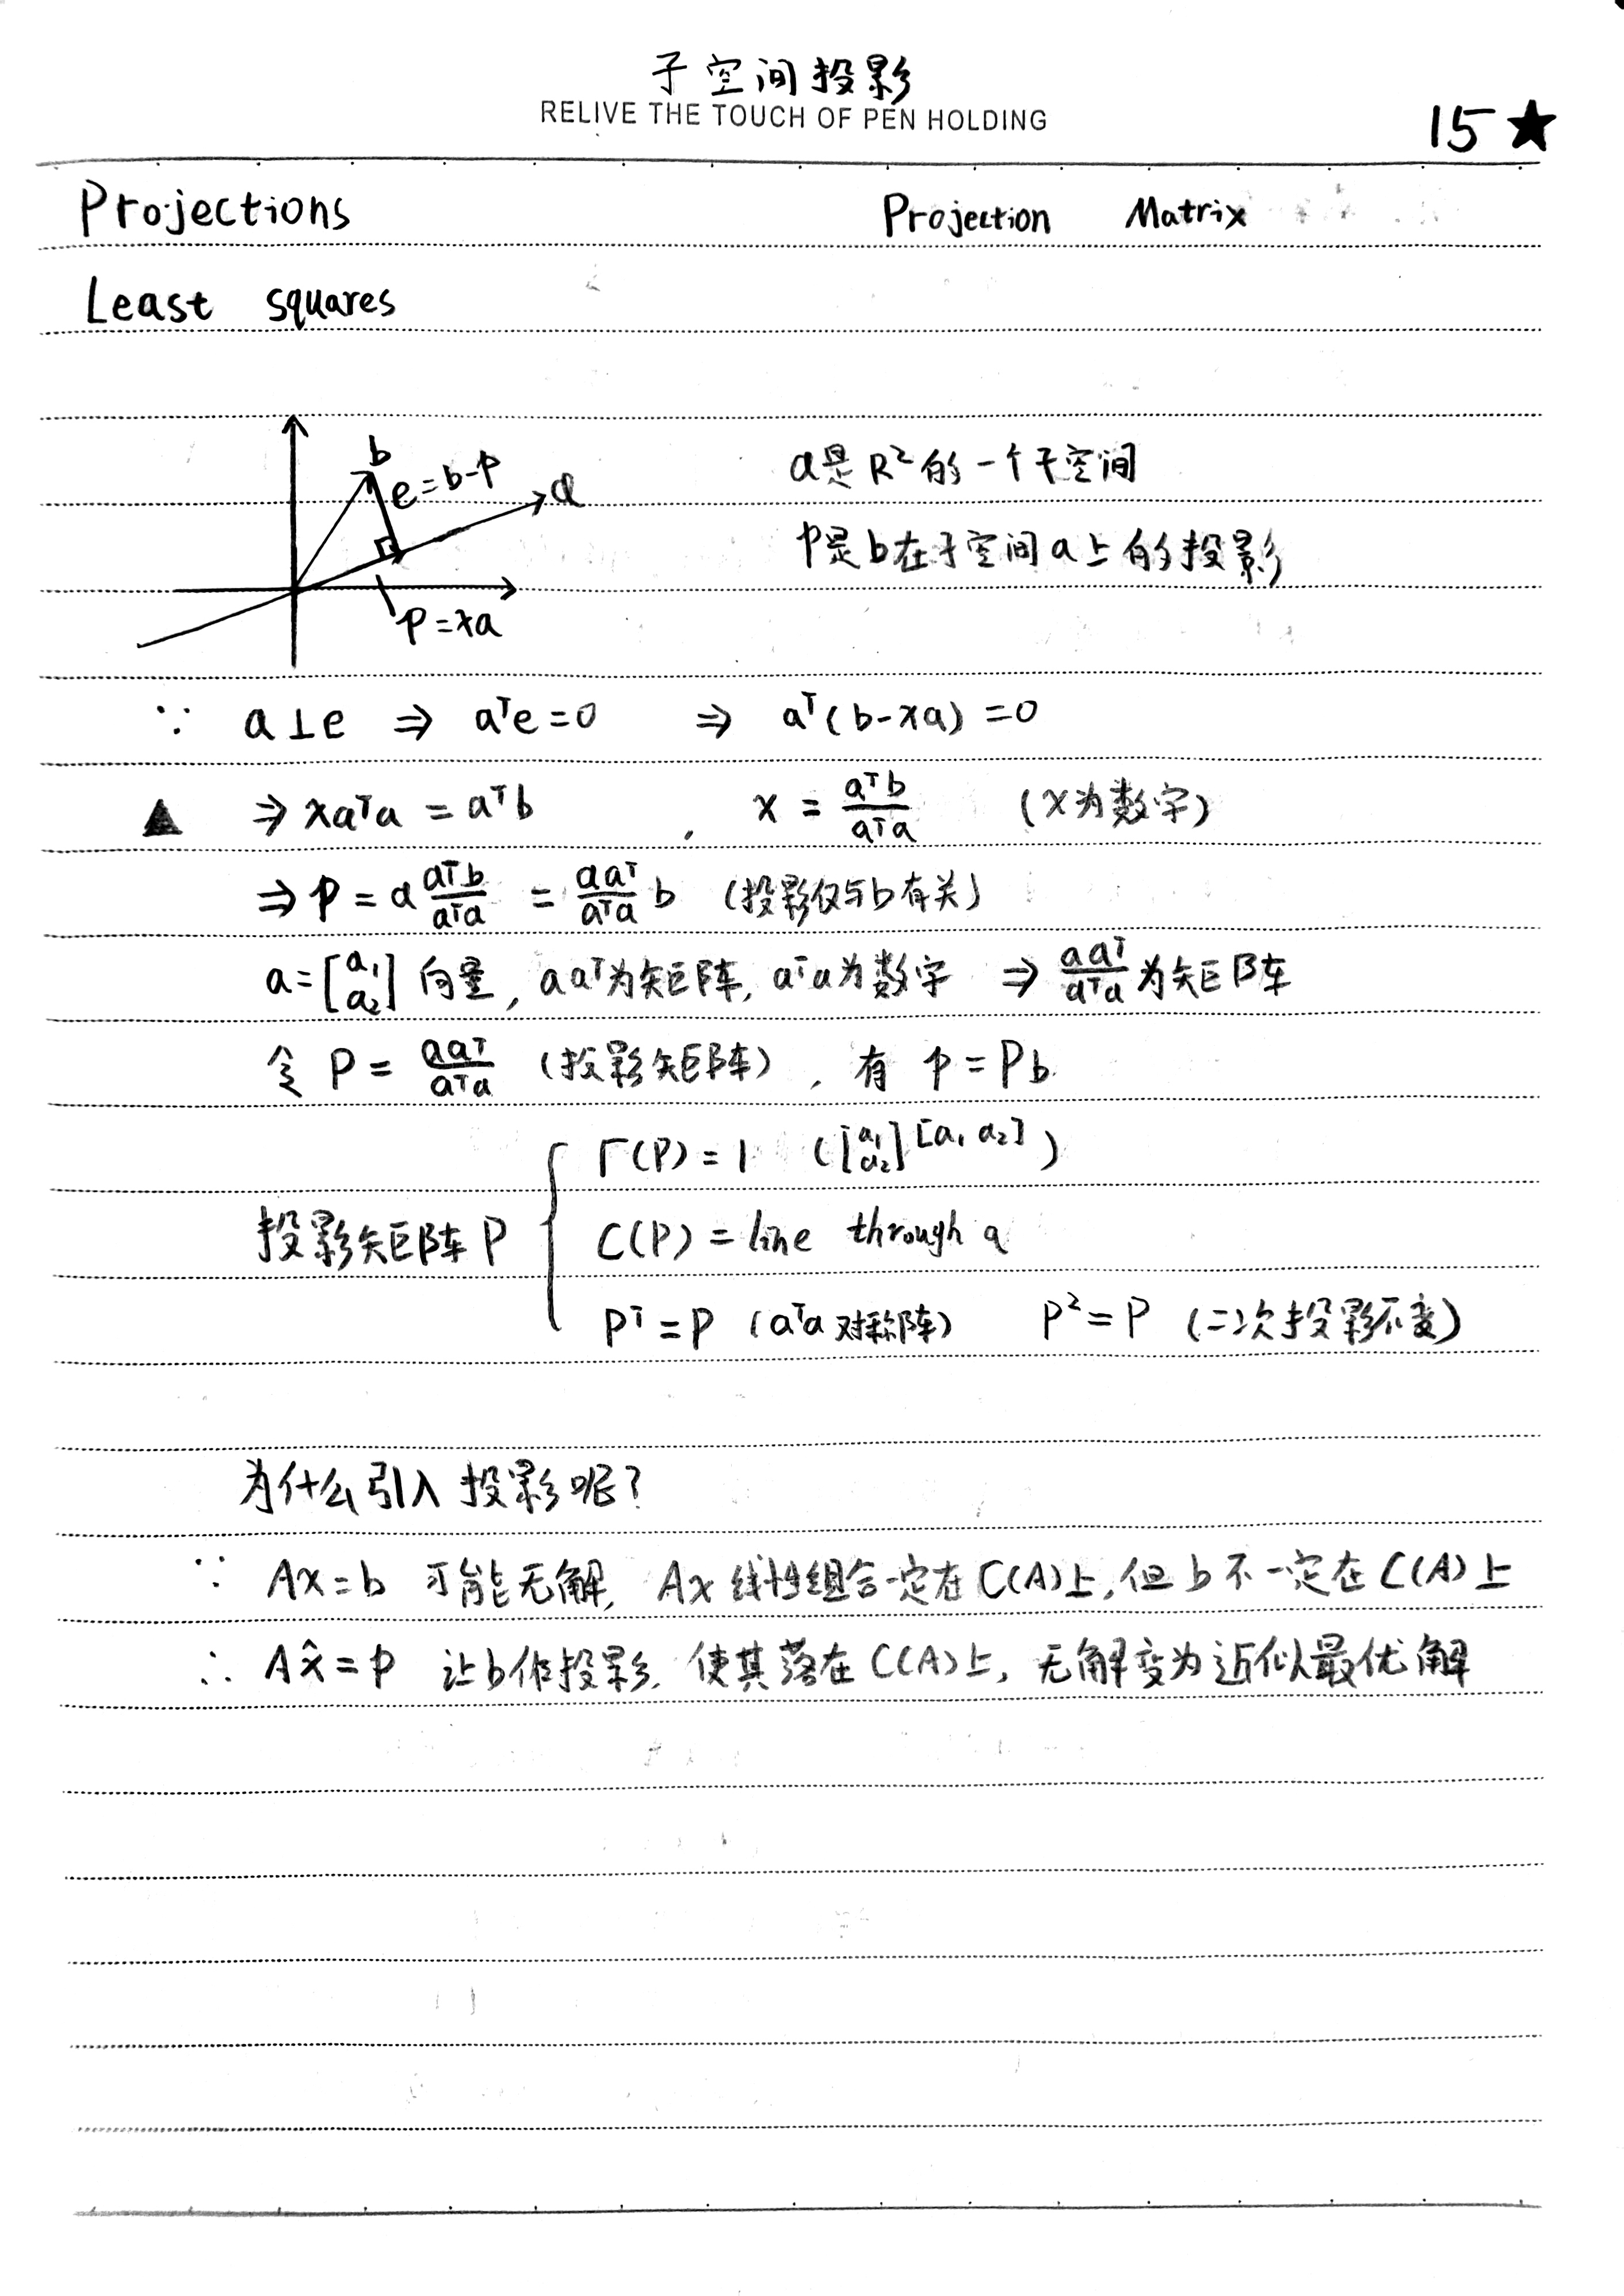 子空间投影
RELIVE THE TOUCH OF PEN HOLDING
15 ★
Projections Projection Matrix
Least squares
b
e=b-p
a
p=xa
a是R²的一个子空间
p是b在子空间a上的投影
∵ a⊥e ⇒ aᵀe=0 ⇒ aᵀ(b-xa)=0
▲ ⇒ xaᵀa = aᵀb , x = aᵀb/aᵀa (x为数字)
⇒ p = a aᵀb/aᵀa = aaᵀ/aᵀa b (投影仅与b有关)
a=[a₁ a₂] 向量, aaᵀ为矩阵, aᵀa为数字 ⇒ aaᵀ/aᵀa 为矩阵
令 P = aaᵀ/aᵀa (投影矩阵) , 有 p=Pb
投影矩阵P { r(P)=1 ([a₁ a₂][a₁ a₂])
C(P) = line through a
Pᵀ=P (aᵀa 对称阵) P²=P (二次投影不变)
为什么引入投影呢?
∵ Ax=b 可能无解, Ax线性组合一定在C(A)上,但b不一定在C(A)上
∴ Ax̂=p 让b作投影, 使其落在C(A)上, 无解变为近似最优解